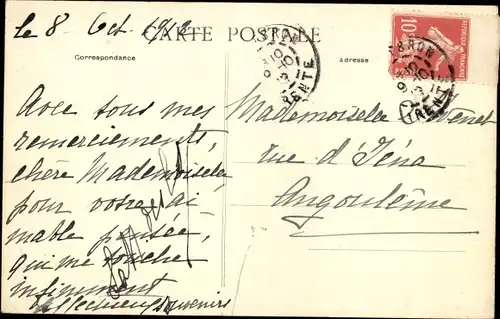 le 8 Oct 1912
CARTE POSTALE
Correspondance
adresse
10
REPUBLIQUE FRANÇAISE
Avec tous mes
remerciements,
chère Mademoiselle
pour votre ai
mable pensée,
qui me touche
infiniment
affectueux souvenirs
Mademoiselle
rue d'Iéna
Angoulême